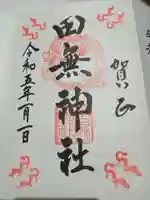 賀正
田無神社
令和五年一月一日